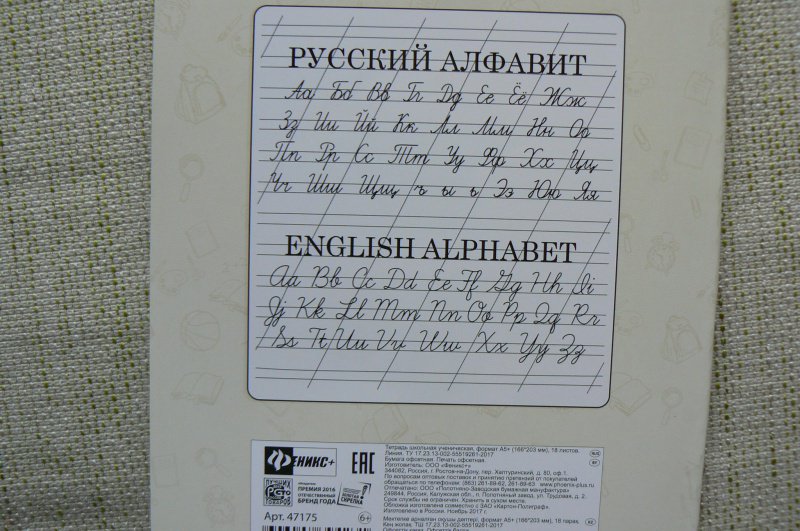 РУССКИЙ АЛФАВИТ
Аа Бб Вв Гг Дд Ее Ёё Жж
Зз Ии Йй Кк Лл Мм Нн Оо
Пп Рр Сс Тт Уу Фф Хх Цц
Чч Шш Щщ ъ ы ь Ээ Юю Яя
ENGLISH ALPHABET
Aa Bb Cc Dd Ee Ff Gg Hh Ii
Jj Kk Ll Mm Nn Oo Pp Qq Rr
Ss Tt Uu Vv Ww Xx Yy Zz
ФЕНИКС+
EAC
ЛУЧШИХ
ТОВАРОВ
ПРЕМИЯ 2016
ОТЕЧЕСТВЕННЫЙ
БРЕНД ГОДА
ЗОЛОТАЯ
СКРЕПКА
Арт. 47175
6+
Тетрадь школьная ученическая, формат А5+ (166*203 мм), 18 листов.
Линия. ТУ 17.23.13-002-55519261-2017
Бумага офсетная. Печать офсетная.
Изготовитель: ООО «Феникс+»
344082, Россия, г. Ростов-на-Дону, пер. Халтуринский, д. 80, оф.1.
По вопросам оптовых поставок и принятия претензий обращаться
по телефонам: (863) 261-89-62, 261-89-63 www.phoenix-plus.ru
Отпечатано: ООО «Полотняно-Заводская бумажная мануфактура»
249844, Россия, Калужская обл., п. Полотняный завод, ул. Трудовая, д. 2.
Срок службы не ограничен. Хранить в сухом месте.
Обложка изготовлена совместно с ЗАО «Картон-Полиграф».
Изготовлено в России. Ноябрь 2017 г.
Мектепке арналған оқушы дәптері, формат А5+ (166*203 мм), 18 парақ.